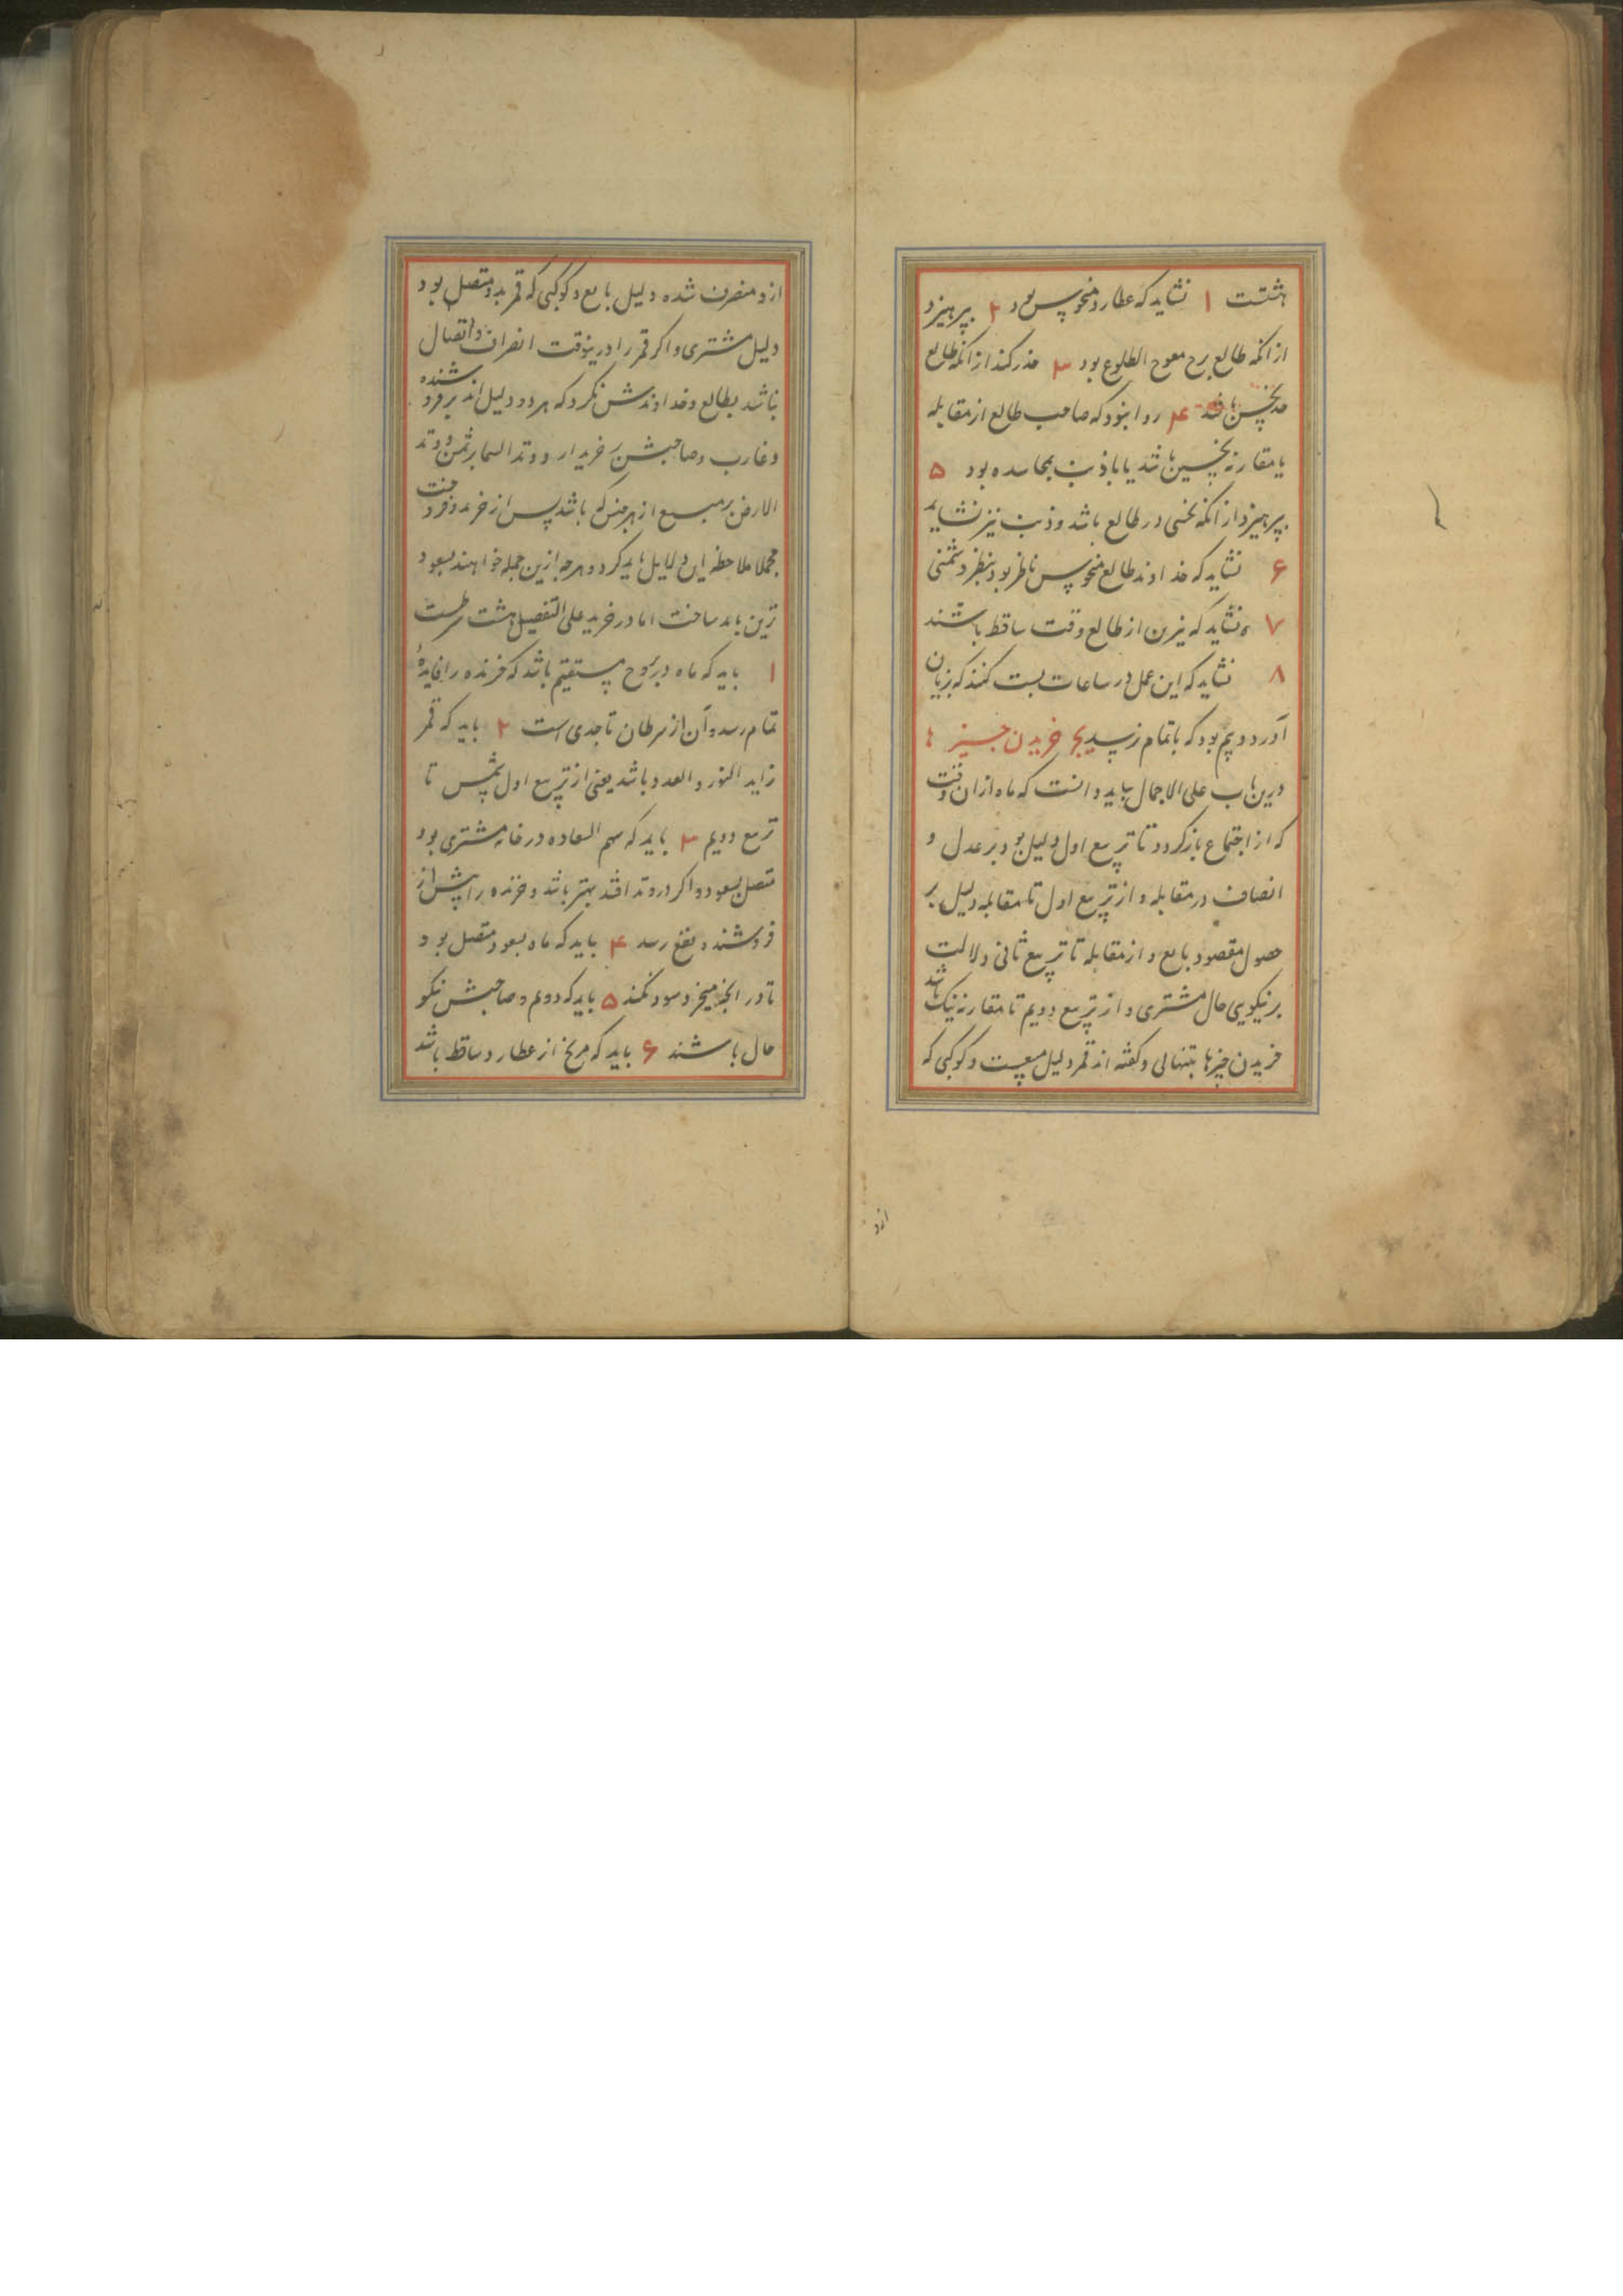 هشتست ۱ نشاید که عطارد منحوس بود ۲ بپرهیزد
از انکه طالع برج معوج الطلوع بود ۳ حذر کند از انکه طالع
حد نحسین باشد ۴ روا نبود که صاحب طالع از مقابله
یا مقارنه نحسین باشد یا با ذنب بمجاسده بود ۵
بپرهیزد از انکه نحسی در طالع باشد و ذنب نیز نشاید
۶ نشاید که خداوند طالع منحوس ناظر بود بنظر دشمنی
۷ نشاید که نیرین از طالع وقت ساقط باشند
۸ نشاید که این عمل در ساعات بست کنند که زیان
آورد و بیم بود که باتمام نرسد یج خریدن چیزها
درین باب علی الاجمال بباید دانست که ماه ازان وقت
که از اجتماع بازگردد تا تربیع اول دلیل بود بر عدل و
انصاف در مقابله و از تربیع اول تا مقابله دلیل بر
حصول مقصود بایع و از مقابله تا تربیع ثانی دلالت
بر نیکویی حال مشتری و از تربیع دویم تا مقارنه نیک باشد
خریدن چیزها بتنهائی و گفته اند قمر دلیل مبیعست و کوکبی که
ازو
ازو منصرف شده دلیل بایع و کوکبی که قمر بدو متصل بود
دلیل مشتری و اگر قمر را درینوقت انصراف و اتصال
نباشد بطالع و خداوندش نگرد که هر دو دلیل اند بر فروشنده
و غارب و صاحبش بر خریدار و وتد السما بر ثمن و وتد
الارض بر مبیع از هر جنس که باشد پس از خرید و فروخت
مجملا ملاحظه این دلایل باید کرد و هرچه ازین جمله خواهند بسعود
ترین باید ساخت اما در خرید علی التفصیل هشت شرطست
۱ باید که ماه در بروج مستقیم باشد که خرنده را فایدهٔ
تمام رسد و آن از سرطان تا جدی است ۲ باید که قمر
زاید النور و العدد باشد یعنی از تربیع اول شمس تا
تربیع دویم ۳ باید که سهم السعاده در خانه مشتری بود
متصل بسعود و اگر در وتد افتد بهتر باشد و خرنده را پیش از
فروشنده نفع رسد ۴ باید که ماه بسعود متصل بود
تا در انچه میخرد سود کند ۵ باید که دوم و صاحبش نیکو
حال باشند ۶ باید که مریخ از عطارد ساقط باشد